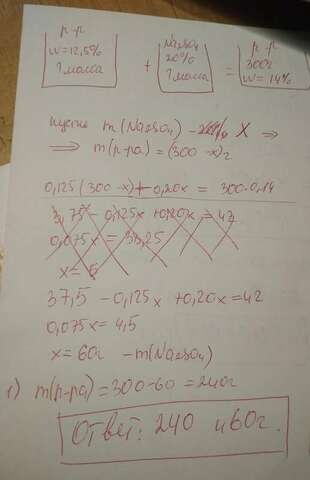 р-р
W=12,5%
? масса
+
Na2SO4
20%
? масса
=
р-р
300г
W=14%
пусть m(Na2SO4) - X ⇒
⇒ m(р-ра) = (300-x)г
0,125(300-x)+0,20x = 300·0,14
3,75 - 0,125x +0,20x = 42
0,075x = 38,25
x = 5
37,5 - 0,125x +0,20x=42
0,075x= 4,5
x= 60г - m(Na2SO4)
1) m(р-ра)=300-60=240г
Ответ: 240 и 60г.